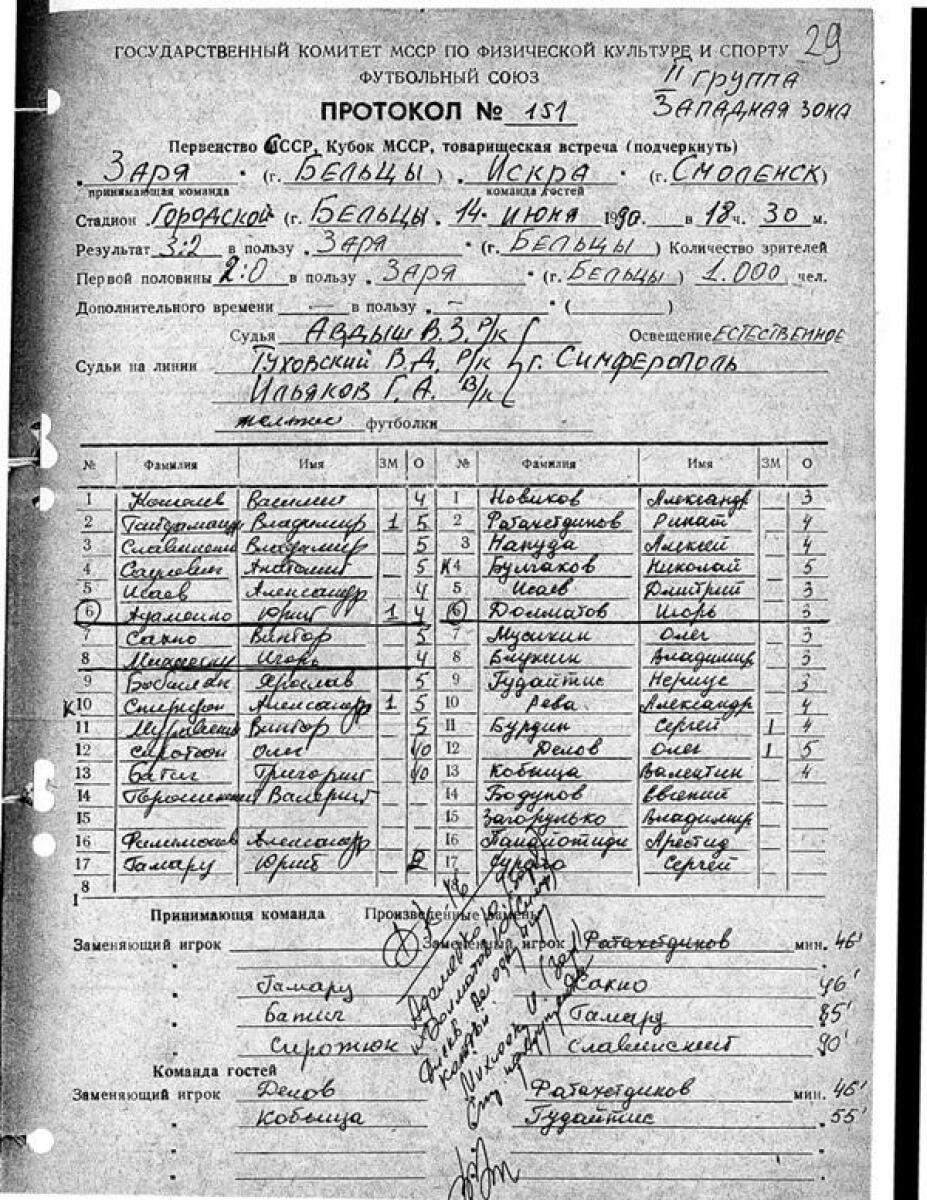 29
ГОСУДАРСТВЕННЫЙ КОМИТЕТ МССР ПО ФИЗИЧЕСКОЙ КУЛЬТУРЕ И СПОРТУ
ФУТБОЛЬНЫЙ СОЮЗ
II ГРУППА
ЗАПАДНАЯ ЗОНА
ПРОТОКОЛ № 151
Первенство СССР, Кубок МССР, товарищеская встреча (подчеркнуть)
ЗАРЯ (г. БЕЛЬЦЫ) ИСКРА (г. СМОЛЕНСК)
принимающая команда команда гостей
Стадион ГОРОДСКОЙ (г. БЕЛЬЦЫ. 14. ИЮНЯ 1990. в 18 ч. 30 м.
Результат 3:2 в пользу ЗАРЯ (г. БЕЛЬЦЫ) Количество зрителей
Первой половины 2:0 в пользу ЗАРЯ (г. БЕЛЬЦЫ) 1.000 чел.
Дополнительного времени — в пользу — ( )
Судья АВДЫШ В.З. Р/К Освещение ЕСТЕСТВЕННОЕ
Судьи на линии ТУХОВСКИЙ В.Д. Р/К г. СИМФЕРОПОЛЬ
ИЛЬЯКОВ Г.А. В/К
желтые футболки
№ Фамилия Имя ЗМ О № Фамилия Имя ЗМ О
1 Василий 4 1 Новиков Александр 3
2 Владимир 1 5 2 Фатахетдинов Ринат 4
3 Владимир 5 3 Напуда Алексей 4
4 Анатолий 5 К4 Булгаков Николай 5
5 Исаев Александр 4 5 Исаев Дмитрий 3
6 Юрий 1 4 6 Долматов Игорь 3
7 Сакно Виктор 5 7 Мусихин Олег 3
8 Игорь 4 8 Владимир 3
9 Ярослав 5 9 Гудайтис 3
К10 Спиридон Александр 1 5 10 Рева Александр 4
11 Виктор 5 11 Бурдин Сергей 1 4
12 Сиротюк Олег 12 Делов Олег 1 5
13 Батиг Григорий 13 Кобыща Валентин 4
14 Валерий 14 Бодунов Евгений
15 15 Загорулько Владимир
16 Филимонов Александр 16 Арестид
17 Гамару Юрий 2 17 Сергей
18
Принимающя команда Произведенные замены
Заменяющий игрок Заменённый игрок Фатахетдинов мин. 46'
Гамару Сакно 46'
Батиг Гамару 85'
Сиротюк 90'
Команда гостей
Заменяющий игрок Делов Фатахетдинов мин. 46'
Кобыща Гудайтис 55'